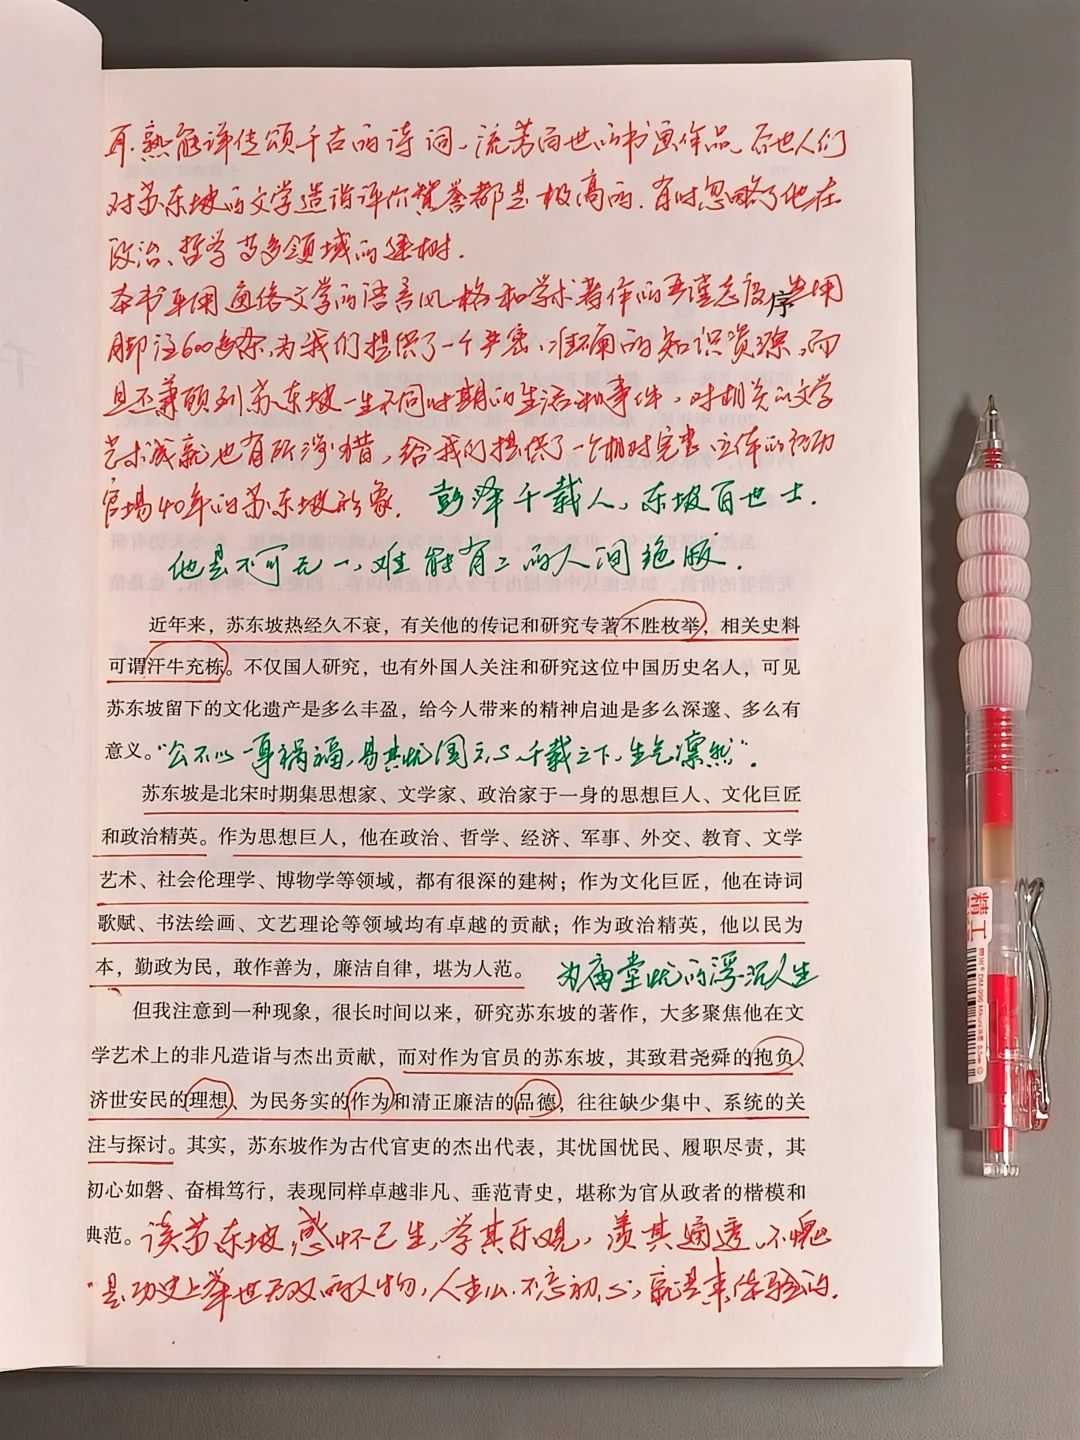 耳熟能详传颂千古的诗词、流芳百世的书画作品，后世人们
对苏东坡的文学造诣评价赞誉都是极高的，有时忽略了他在
政治、哲学等多领域的建树.
本书采用通俗文学的语言风格和学术著作的严谨态度，并用
序
脚注600多条，为我们提供了一个严密、准确的知识资源，而
且还兼顾到苏东坡一生不同时期的生活和事件，对相关的文学
艺术成就也有所涉猎，给我们提供了一个相对完整、立体的
官场40年的苏东坡形象.
彭泽千载人，东坡百世士.
他是不可无一，难能有二的人间绝版.
近年来，苏东坡热经久不衰，有关他的传记和研究专著不胜枚举，相关史料
可谓汗牛充栋。不仅国人研究，也有外国人关注和研究这位中国历史名人，可见
苏东坡留下的文化遗产是多么丰盈，给今人带来的精神启迪是多么深邃、多么有
意义。“公不以一身祸福，易其忧国之心，千载之下，生气凛然”.
苏东坡是北宋时期集思想家、文学家、政治家于一身的思想巨人、文化巨匠
和政治精英。作为思想巨人，他在政治、哲学、经济、军事、外交、教育、文学
艺术、社会伦理学、博物学等领域，都有很深的建树；作为文化巨匠，他在诗词
歌赋、书法绘画、文艺理论等领域均有卓越的贡献；作为政治精英，他以民为
本，勤政为民，敢作善为，廉洁自律，堪为人范。
为庙堂忧的浮沉人生
但我注意到一种现象，很长时间以来，研究苏东坡的著作，大多聚焦他在文
学艺术上的非凡造诣与杰出贡献，而对作为官员的苏东坡，其致君尧舜的抱负、
济世安民的理想、为民务实的作为和清正廉洁的品德，往往缺少集中、系统的关
注与探讨。其实，苏东坡作为古代官吏的杰出代表，其忧国忧民、履职尽责，其
初心如磐、奋楫笃行，表现同样卓越非凡、垂范青史，堪称为官从政者的楷模和
典范。读苏东坡，感怀己生，学其乐观，羡其通透，不愧
是历史上举世无双的人物，人生 不忘初心，就是来体验的.
精工